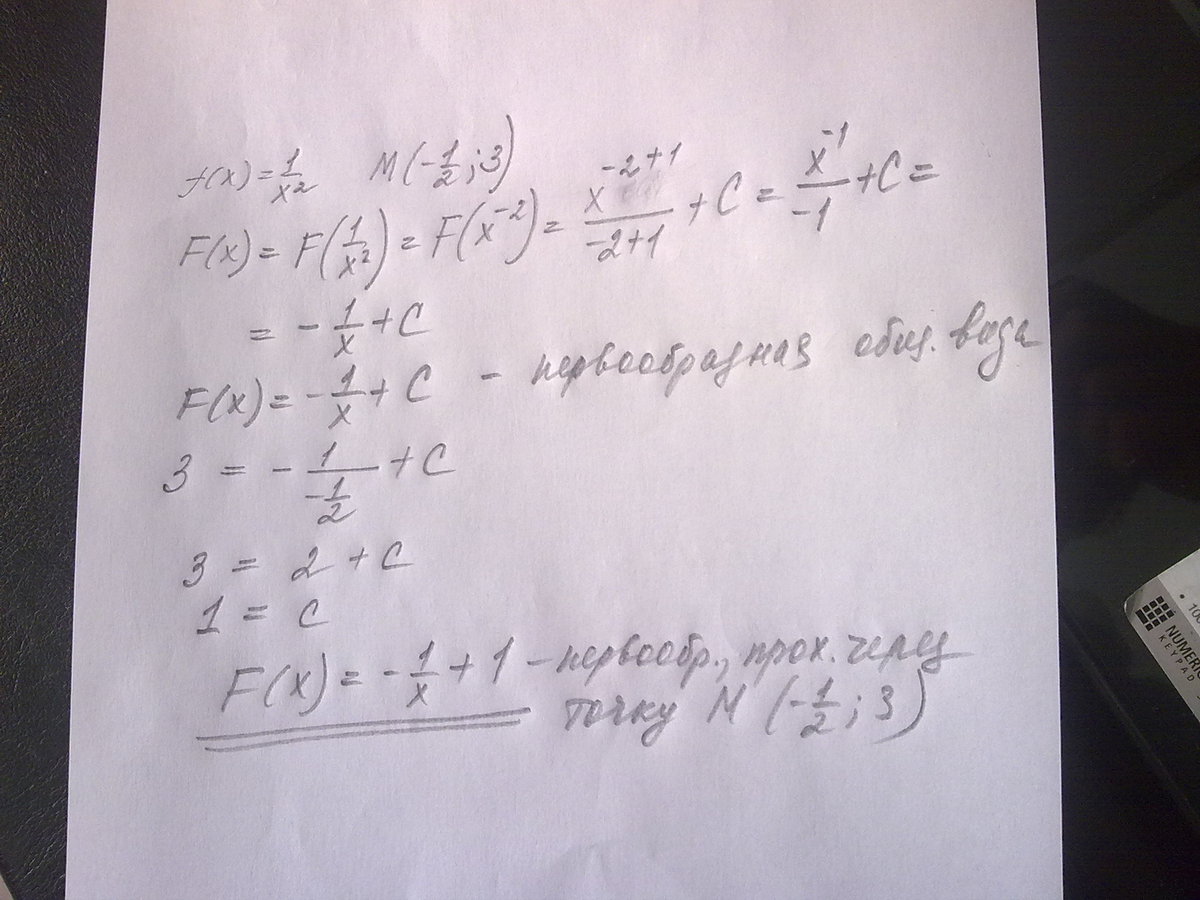 f(x) = 1/x² M(-1/2; 3)
F(x) = F(1/x²) = F(x⁻²) = x⁻²⁺¹/-2+1 + C = x⁻¹/-1 + C =
= - 1/x + C
F(x) = - 1/x + C - первообразная общ. вида
3 = - 1/-1/2 + C
3 = 2 + C
1 = C
F(x) = - 1/x + 1 - первообр., прох. через
точку M (-1/2; 3)
NUMERIC
KEYPAD